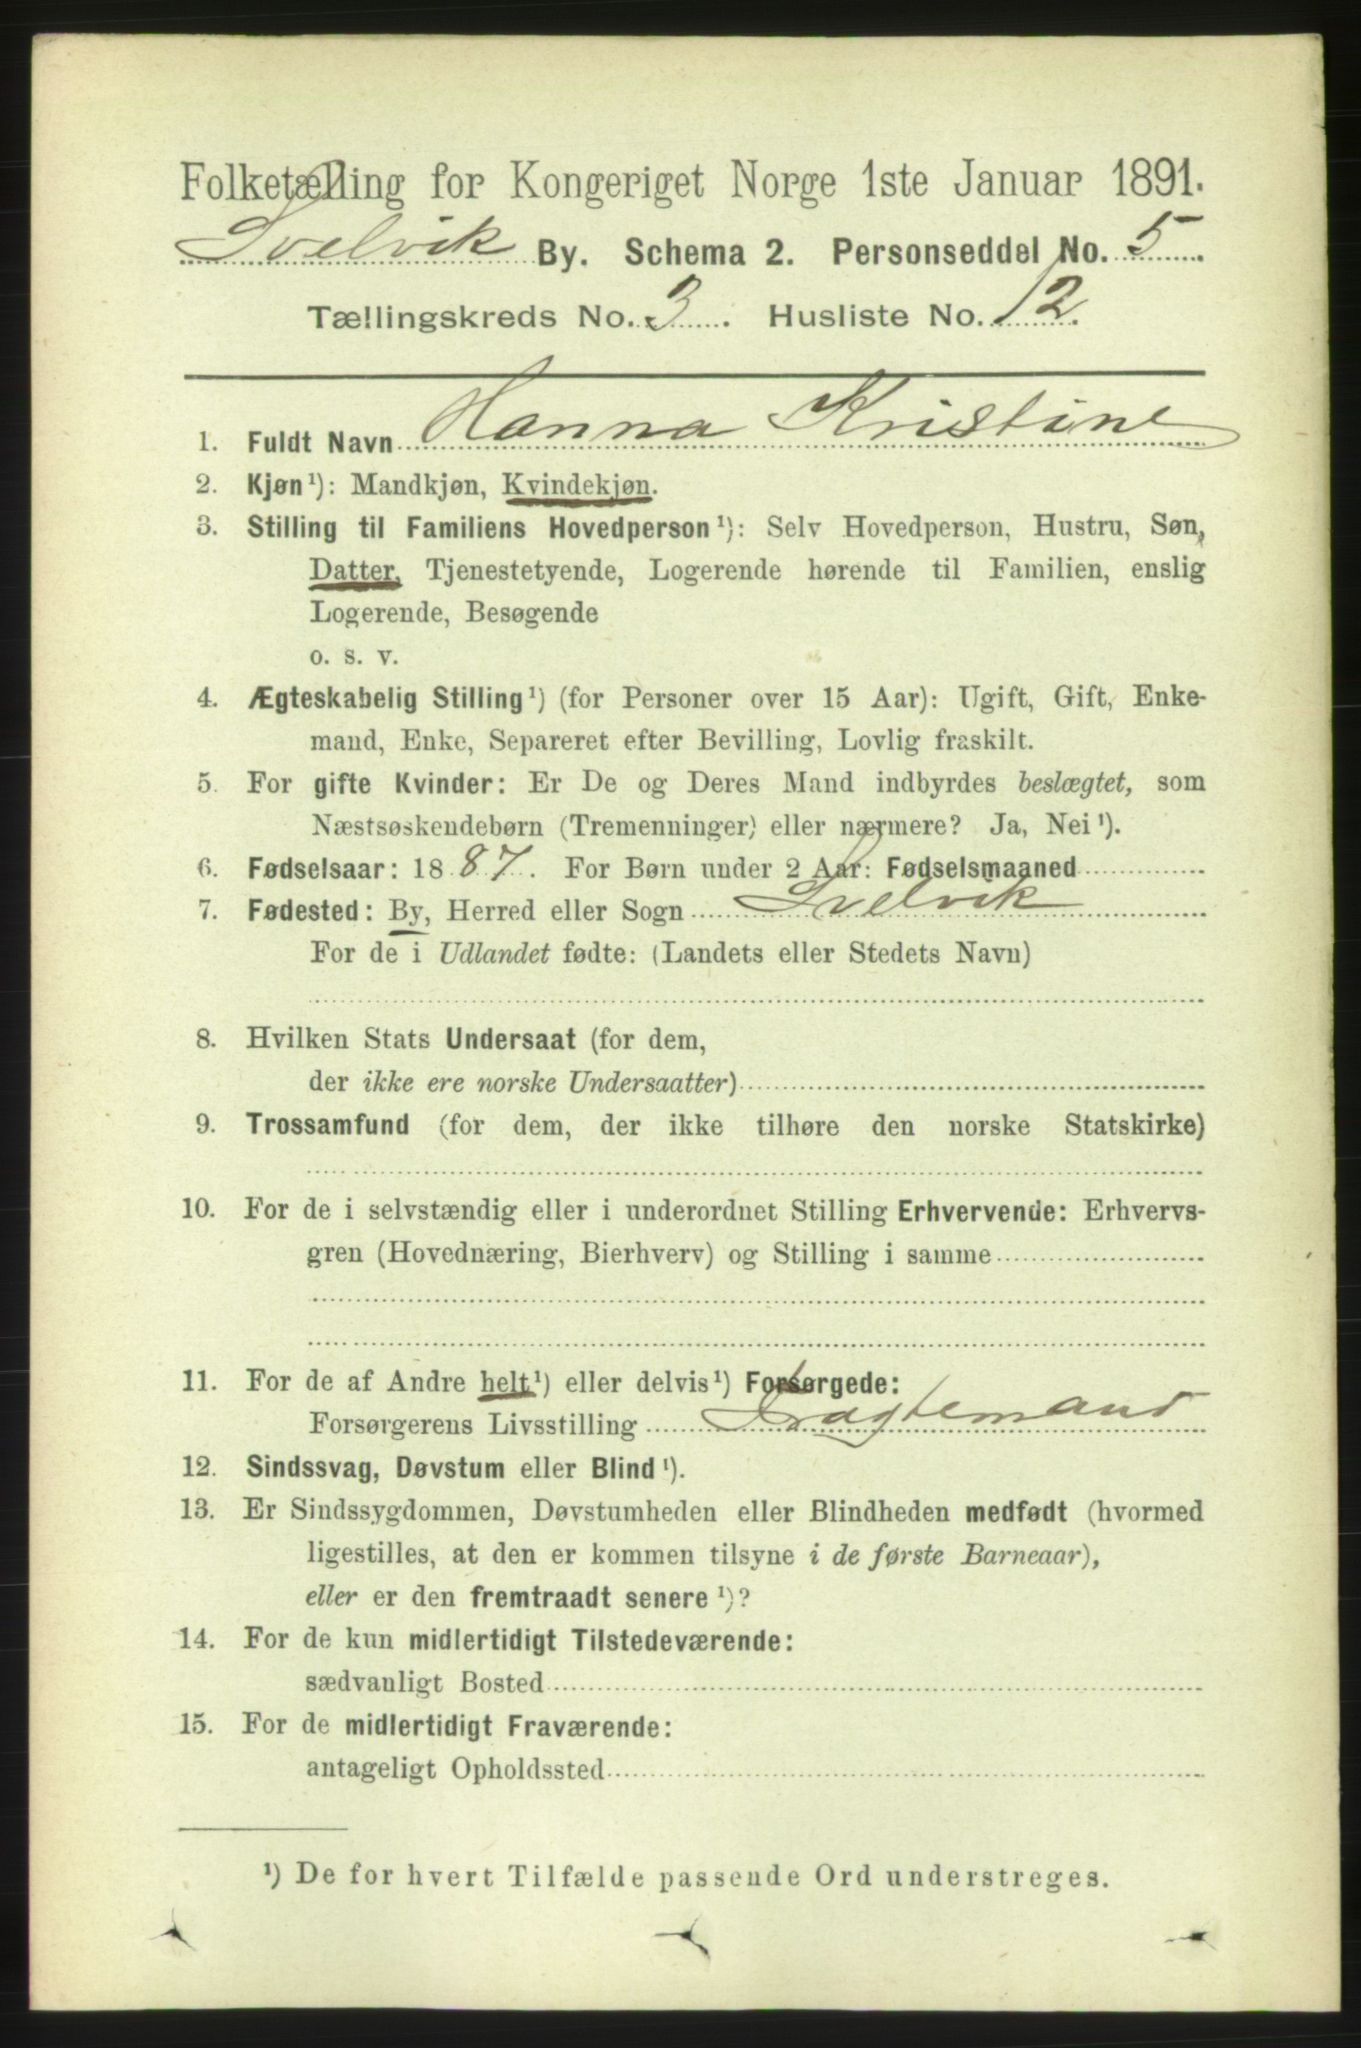 Folketælling for Kongeriget Norge 1ste Januar 1891.
Svelvik By. Schema 2. Personseddel No. 5.
Tællingskreds No. 3. Husliste No. 12.
1. Fuldt Navn Hanna Kristine
2. Kjøn¹): Mandkjøn, Kvindekjøn.
3. Stilling til Familiens Hovedperson¹): Selv Hovedperson, Hustru, Søn,
Datter, Tjenestetyende, Logerende hørende til Familien, enslig
Logerende, Besøgende
o. s. v.
4. Ægteskabelig Stilling¹) (for Personer over 15 Aar): Ugift, Gift, Enke-
mand, Enke, Separeret efter Bevilling, Lovlig fraskilt.
5. For gifte Kvinder: Er De og Deres Mand indbyrdes beslægtet, som
Næstsøskendebørn (Tremenninger) eller nærmere? Ja, Nei¹).
6. Fødselsaar: 1887. For Børn under 2 Aar: Fødselsmaaned
7. Fødested: By, Herred eller Sogn Svelvik
For de i Udlandet fødte: (Landets eller Stedets Navn)
8. Hvilken Stats Undersaat (for dem,
der ikke ere norske Undersaatter)
9. Trossamfund (for dem, der ikke tilhøre den norske Statskirke)
10. For de i selvstændig eller i underordnet Stilling Erhvervende: Erhvervs-
gren (Hovednæring, Bierhverv) og Stilling i samme
11. For de af Andre helt¹) eller delvis¹) Forsørgede:
Forsørgerens Livsstilling Fragtemand
12. Sindssvag, Døvstum eller Blind¹).
13. Er Sindssygdommen, Døvstumheden eller Blindheden medfødt (hvormed
ligestilles, at den er kommen tilsyne i de første Barneaar),
eller er den fremtraadt senere¹)?
14. For de kun midlertidigt Tilstedeværende:
sædvanligt Bosted
15. For de midlertidigt Fraværende:
antageligt Opholdssted
¹) De for hvert Tilfælde passende Ord understreges.